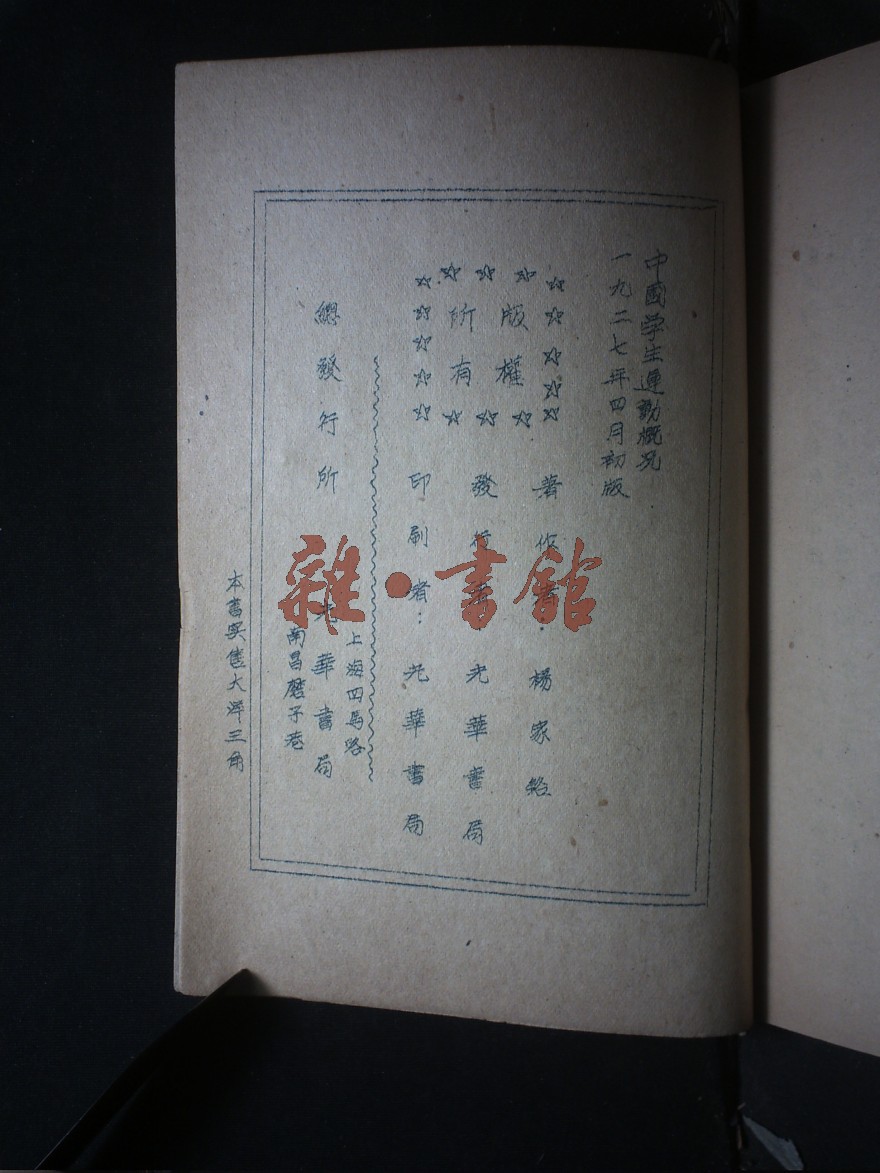 中國学生運動概况
一九二七年四月初版
版權
所有
著作者：楊家銘
發行者：光華書局
印刷者：光華書局
上海四馬路
總發行所 光華書局
南昌磨子巷
本書实售大洋三角
雜·書館